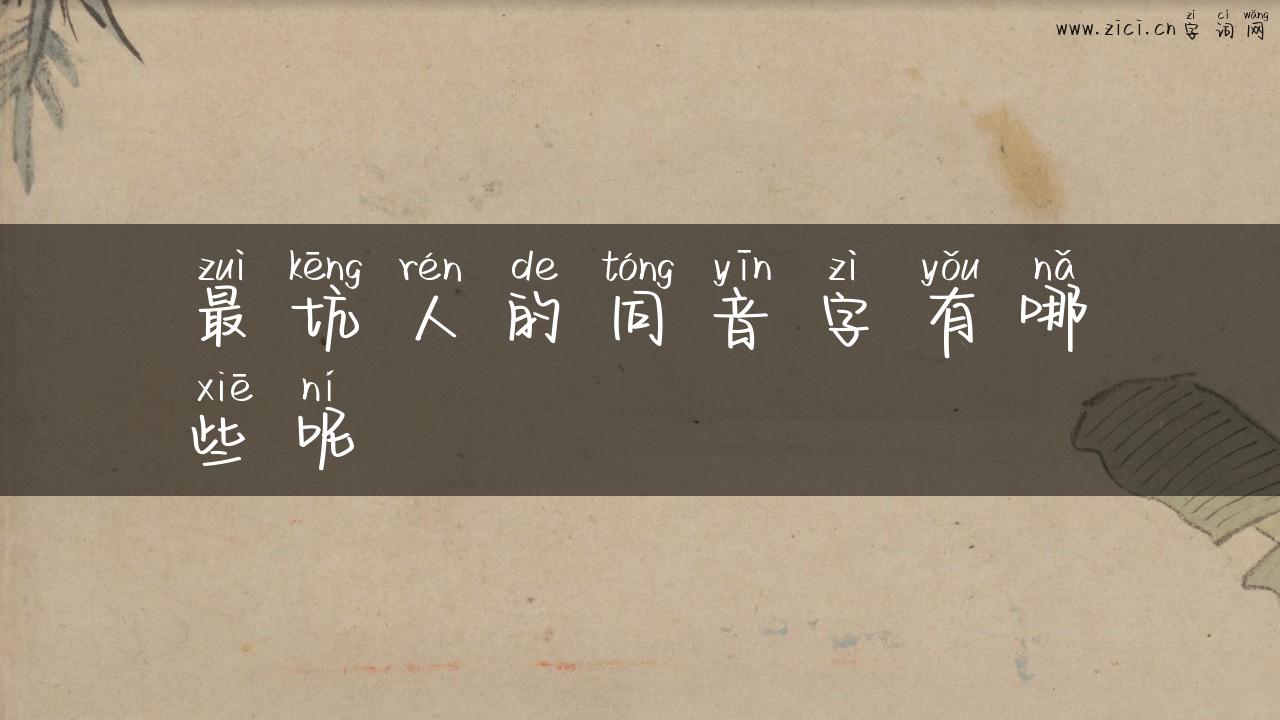 zì cí wǎng
www.zici.cn 字 词 网
zuì kēng rén de tóng yīn zì yǒu nǎ
最 坑 人 的 同 音 字 有 哪
xiē ní
些 呢